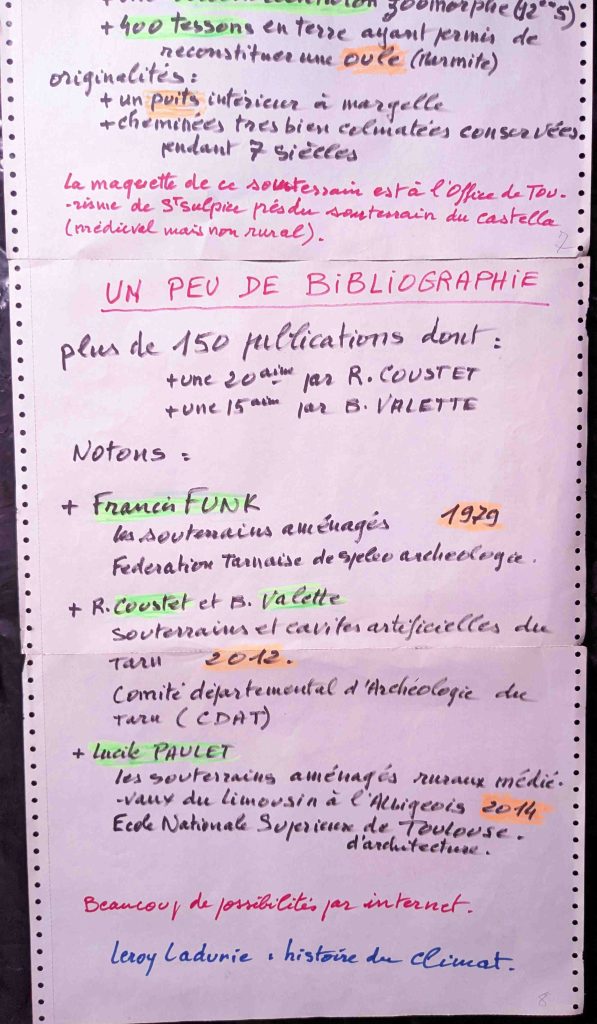 zoomorphe
+ 400 tessons en terre ayant permis de
reconstituer une oule (Marmite)
originalités :
+ un puits intérieur à margelle
+ cheminées tres bien colmatées conservées
pendant 7 siècles
La maquette de ce souterrain est à l'Office de Tou-
-risme de St Sulpice près du souterrain du castella
(médiéval mais non rural).
7
UN PEU DE BIBLIOGRAPHIE
plus de 150 publications dont :
+ une 20aine par R. COUSTET
+ une 15aine par B. VALETTE
Notons :
+ Francis FUNK
les souterrains aménagés 1979
Federation Tarnaise de speleo archeologie.
+ R. Coustet et B. Valette
souterrains et cavites artificielles du
Tarn 2012.
Comité départemental d'Archéologie du
Tarn (CDAT)
+ Lucile PAULET
les souterrains aménagés ruraux médié-
-vaux du limousin à l'Albigeois 2014
Ecole Nationale Superieure de Toulouse.
d'architecture.
Beaucoup de possibilités par internet.
Leroy Ladurie : histoire du climat.
8